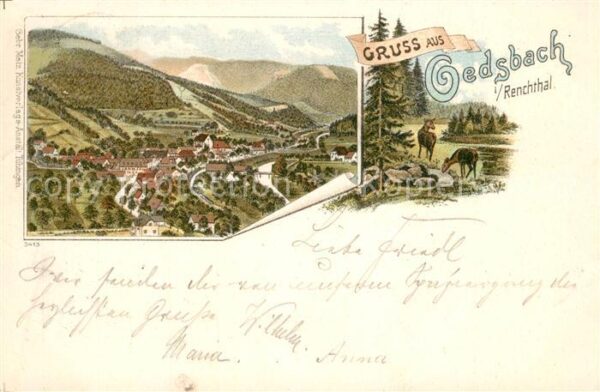 GRUSS AUS
Oedsbach
i/Renchthal.
Gebr. Metz, Kunstverlags-Anstalt, Tübingen.
3413
Liebe Friedl
Wir senden dir von unserm Spaziergang die
herzlichsten Grüße Wilhelm
Maria. Anna